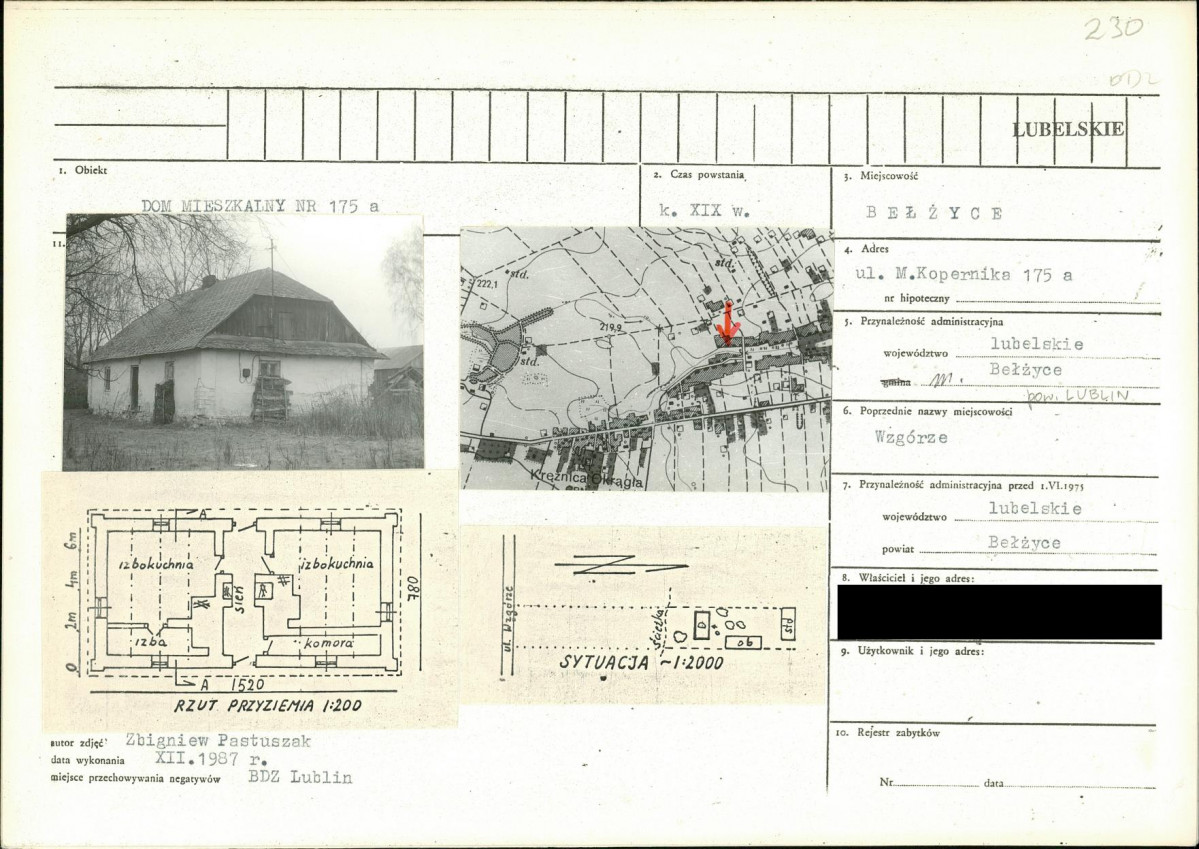 230
ODZ
LUBELSKIE
1. Obiekt
DOM MIESZKALNY NR 175 a
2. Czas powstania
k. XIX w.
3. Miejscowość
BEŁŻYCE
4. Adres
ul. M.Kopernika 175 a
nr hipoteczny
5. Przynależność administracyjna
województwo lubelskie
gmina m. Bełżyce
pow. LUBLIN
6. Poprzednie nazwy miejscowości
Wzgórze
7. Przynależność administracyjna przed 1.VI.1975
województwo lubelskie
powiat Bełżyce
8. Właściciel i jego adres:
9. Użytkownik i jego adres:
10. Rejestr zabytków
Nr data
11.
222,1
std.
219,9
std.
std.
Krężnica Okrągła
A
izbokuchnia
izbokuchnia
sień
izba
komora
0 2m 4m 6m
780
A 1520
RZUT PRZYZIEMIA 1:200
ul. Wzgórze
ścieżka
D
ob
std
SYTUACJA ~1:2000
autor zdjęć Zbigniew Pastuszak
data wykonania XII.1987 r.
miejsce przechowywania negatywów BDZ Lublin